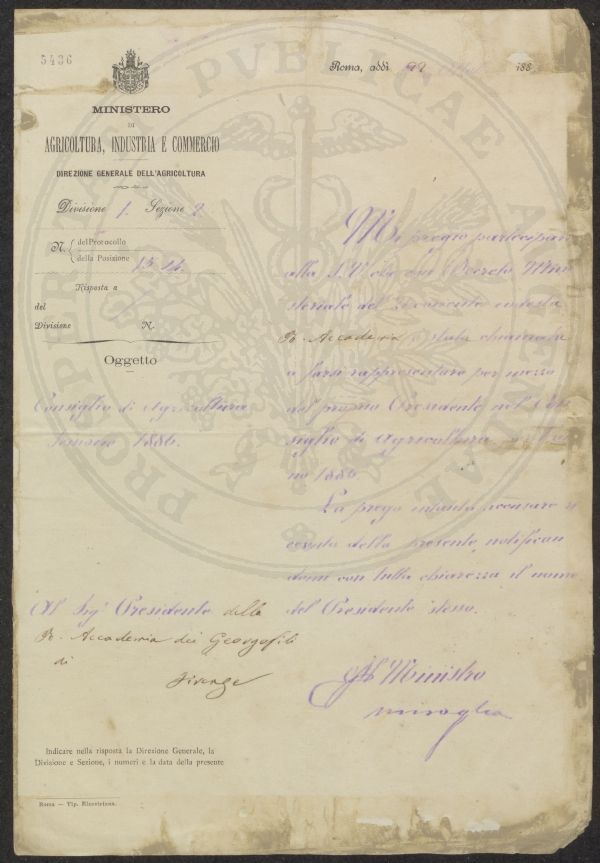 5436
Roma, addì 22 188
MINISTERO
DI
AGRICOLTURA, INDUSTRIA E COMMERCIO
DIREZIONE GENERALE DELL'AGRICOLTURA
Divisione 1. Sezione 2.
N. { del Protocollo
della Posizione 15.14.
Risposta a
del
Divisione N.
Oggetto
Consiglio di Agricoltura
Sessione 1886.
Mi pregio partecipare
alla S.V. che con Decreto Mini
steriale del 21 corrente codesta
R. Accademia è stata chiamata
a farsi rappresentare per mezzo
del proprio Presidente nel Con
siglio di Agricoltura
no 1886
La prego intanto accusare ri
cevuta della presente, notifican
domi con tutta chiarezza il nome
del Presidente stesso.
Al Sigr Presidente della
R. Accademia dei Georgofili
di
Firenze
Il Ministro
Miraglia
Indicare nella risposta la Direzione Generale, la
Divisione e Sezione, i numeri e la data della presente
Roma — Tip. Ripamonti.
PROSPERITATI PUBLICAE AUGENDAE